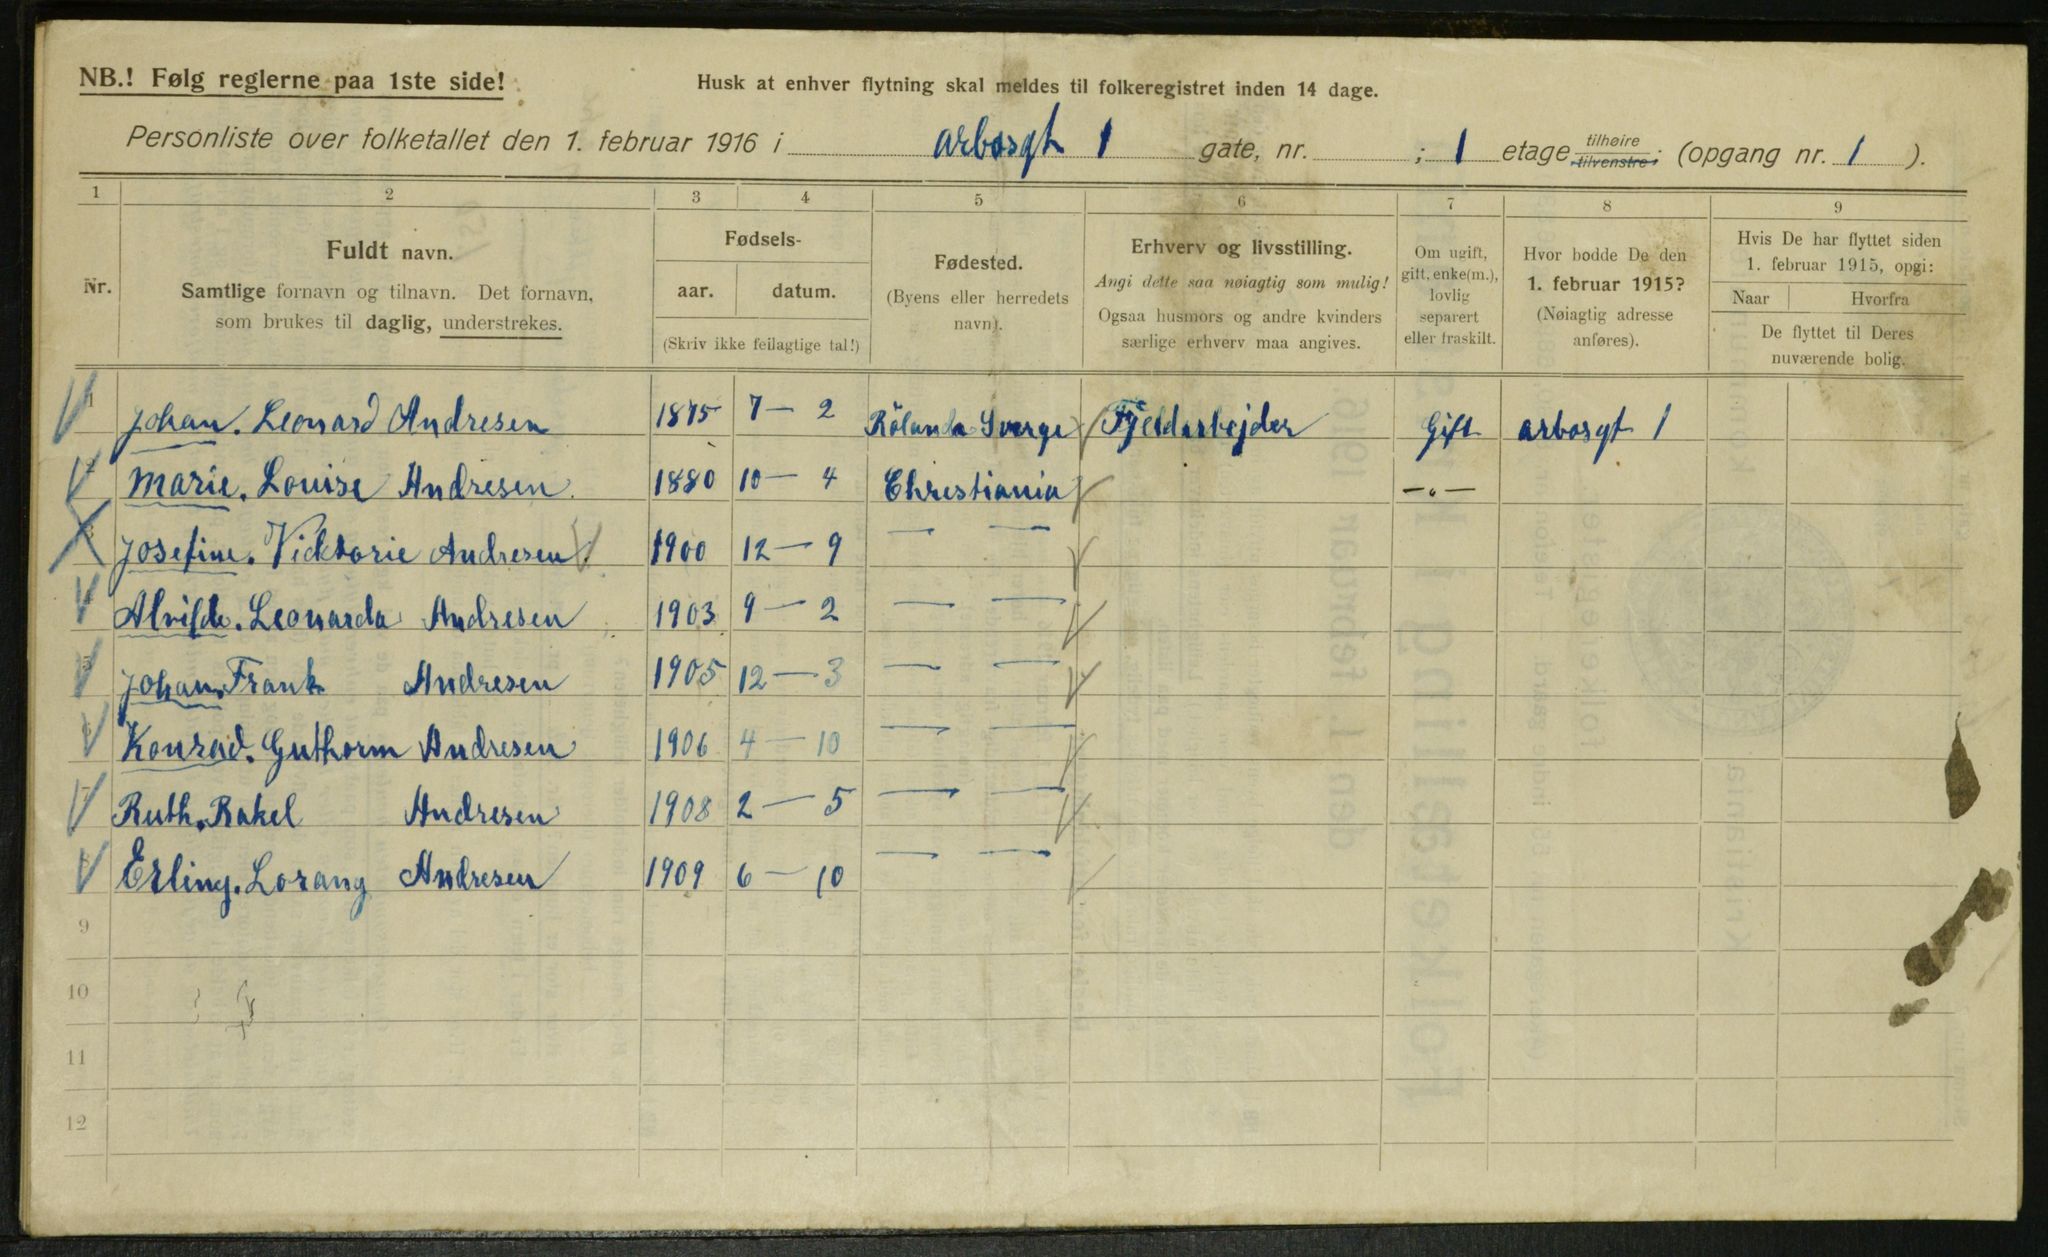 NB.! Følg reglerne paa 1ste side!
Husk at enhver flytning skal meldes til folkeregistret inden 14 dage.
Personliste over folketallet den 1. februar 1916 i arbosgt 1 gate, nr. ; 1 etage tilhøire tilvenstre; (opgang nr. 1 ).
1 2 3 4 5 6 7 8 9
Nr.
Fuldt navn.
Samtlige fornavn og tilnavn. Det fornavn,
som brukes til daglig, understrekes.
Fødsels-
aar. datum.
(Skriv ikke feilagtige tal!)
Fødested.
(Byens eller herredets
navn).
Erhverv og livsstilling.
Angi dette saa nøiagtig som mulig!
Ogsaa husmors og andre kvinders
særlige erhverv maa angives.
Om ugift,
gift, enke(m.),
lovlig
separert
eller fraskilt.
Hvor bodde De den
1. februar 1915?
(Nøiagtig adresse
anføres).
Hvis De har flyttet siden
1. februar 1915, opgi:
Naar Hvorfra
De flyttet til Deres
nuværende bolig.
1 Johan. Leonard Andresen 1875 7 — 2 Rölanda Sverge Fjeldarbejder Gift arbosgt 1
2 Marie. Louise Andresen. 1880 10 — 4 Chrestiania —"—
3 Josefine. Vicktorie Andresen 1900 12 — 9 — —
4 Alvilde. Leonarda Andresen 1903 9 — 2 — —
5 Johan. Frank Andresen 1905 12 — 3 — —
6 Konrad. Guthorm Andresen 1906 4 — 10 — —
7 Ruth. Rakel Andresen 1908 2 — 5 — —
8 Erling. Lorang Andresen 1909 6 — 10 — —
9
10
11
12